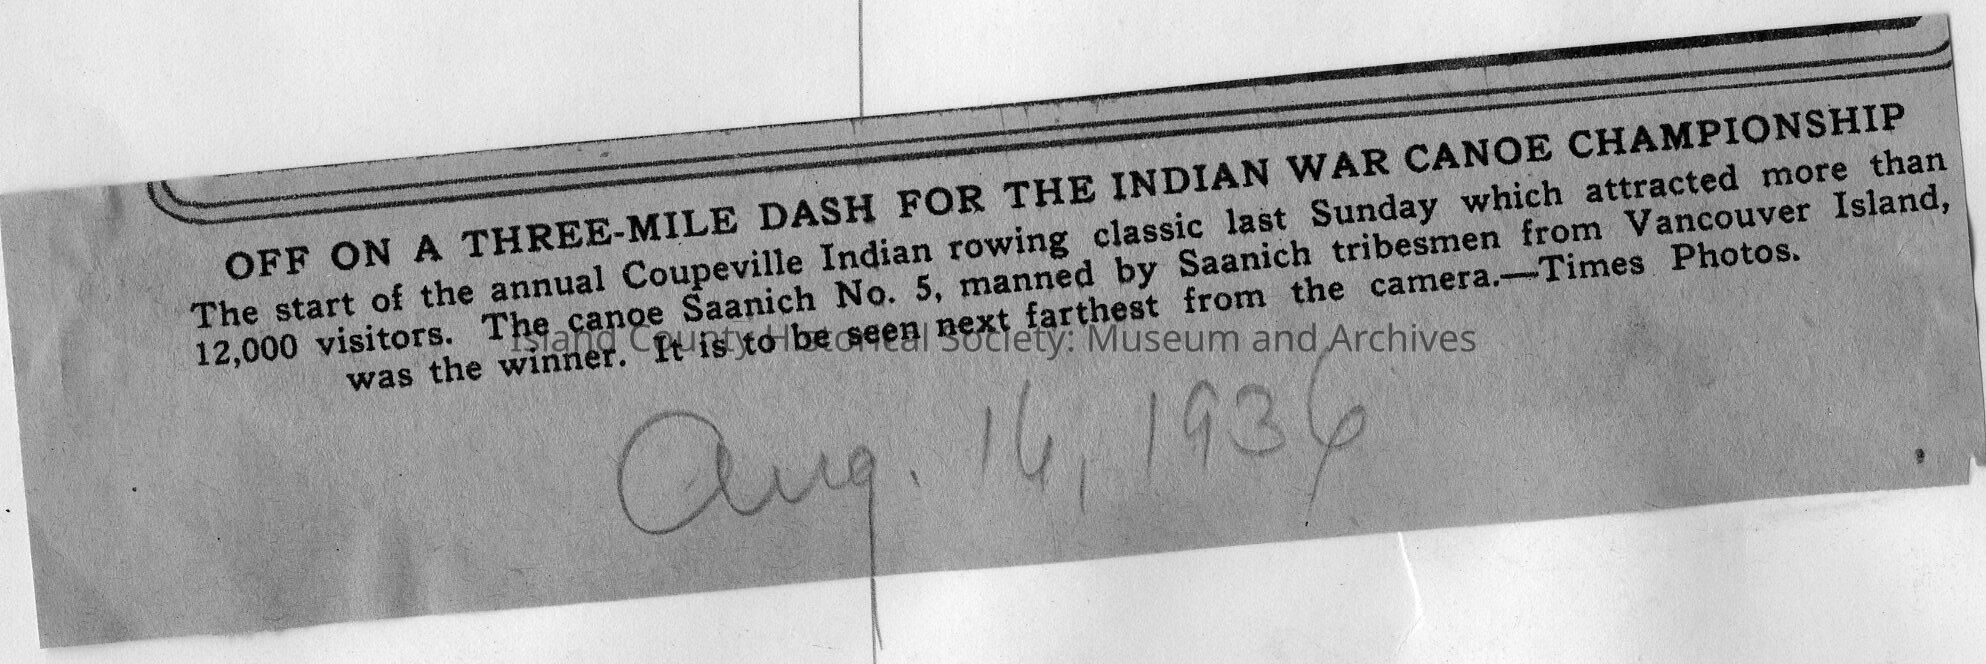 OFF ON A THREE-MILE DASH FOR THE INDIAN WAR CANOE CHAMPIONSHIP
The start of the annual Coupeville Indian rowing classic last Sunday which attracted more than
12,000 visitors. The canoe Saanich No. 5, manned by Saanich tribesmen from Vancouver Island,
was the winner. It is to be seen next farthest from the camera.—Times Photos.
Island County Historical Society: Museum and Archives
Aug. 16, 1936